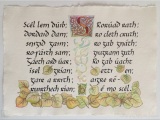 Scél lem dúib:
Dordaid dam:
snigid gaim:
ro-fáith sam
Gáeth ard úar
ísel grían;
gair a rrith
ruirthech rían
Rorúad raith
ro cleth cruth
ro gab gnáth
giugrann guth
Ro gab úacht
etti én
aigre ré
é mo scél.